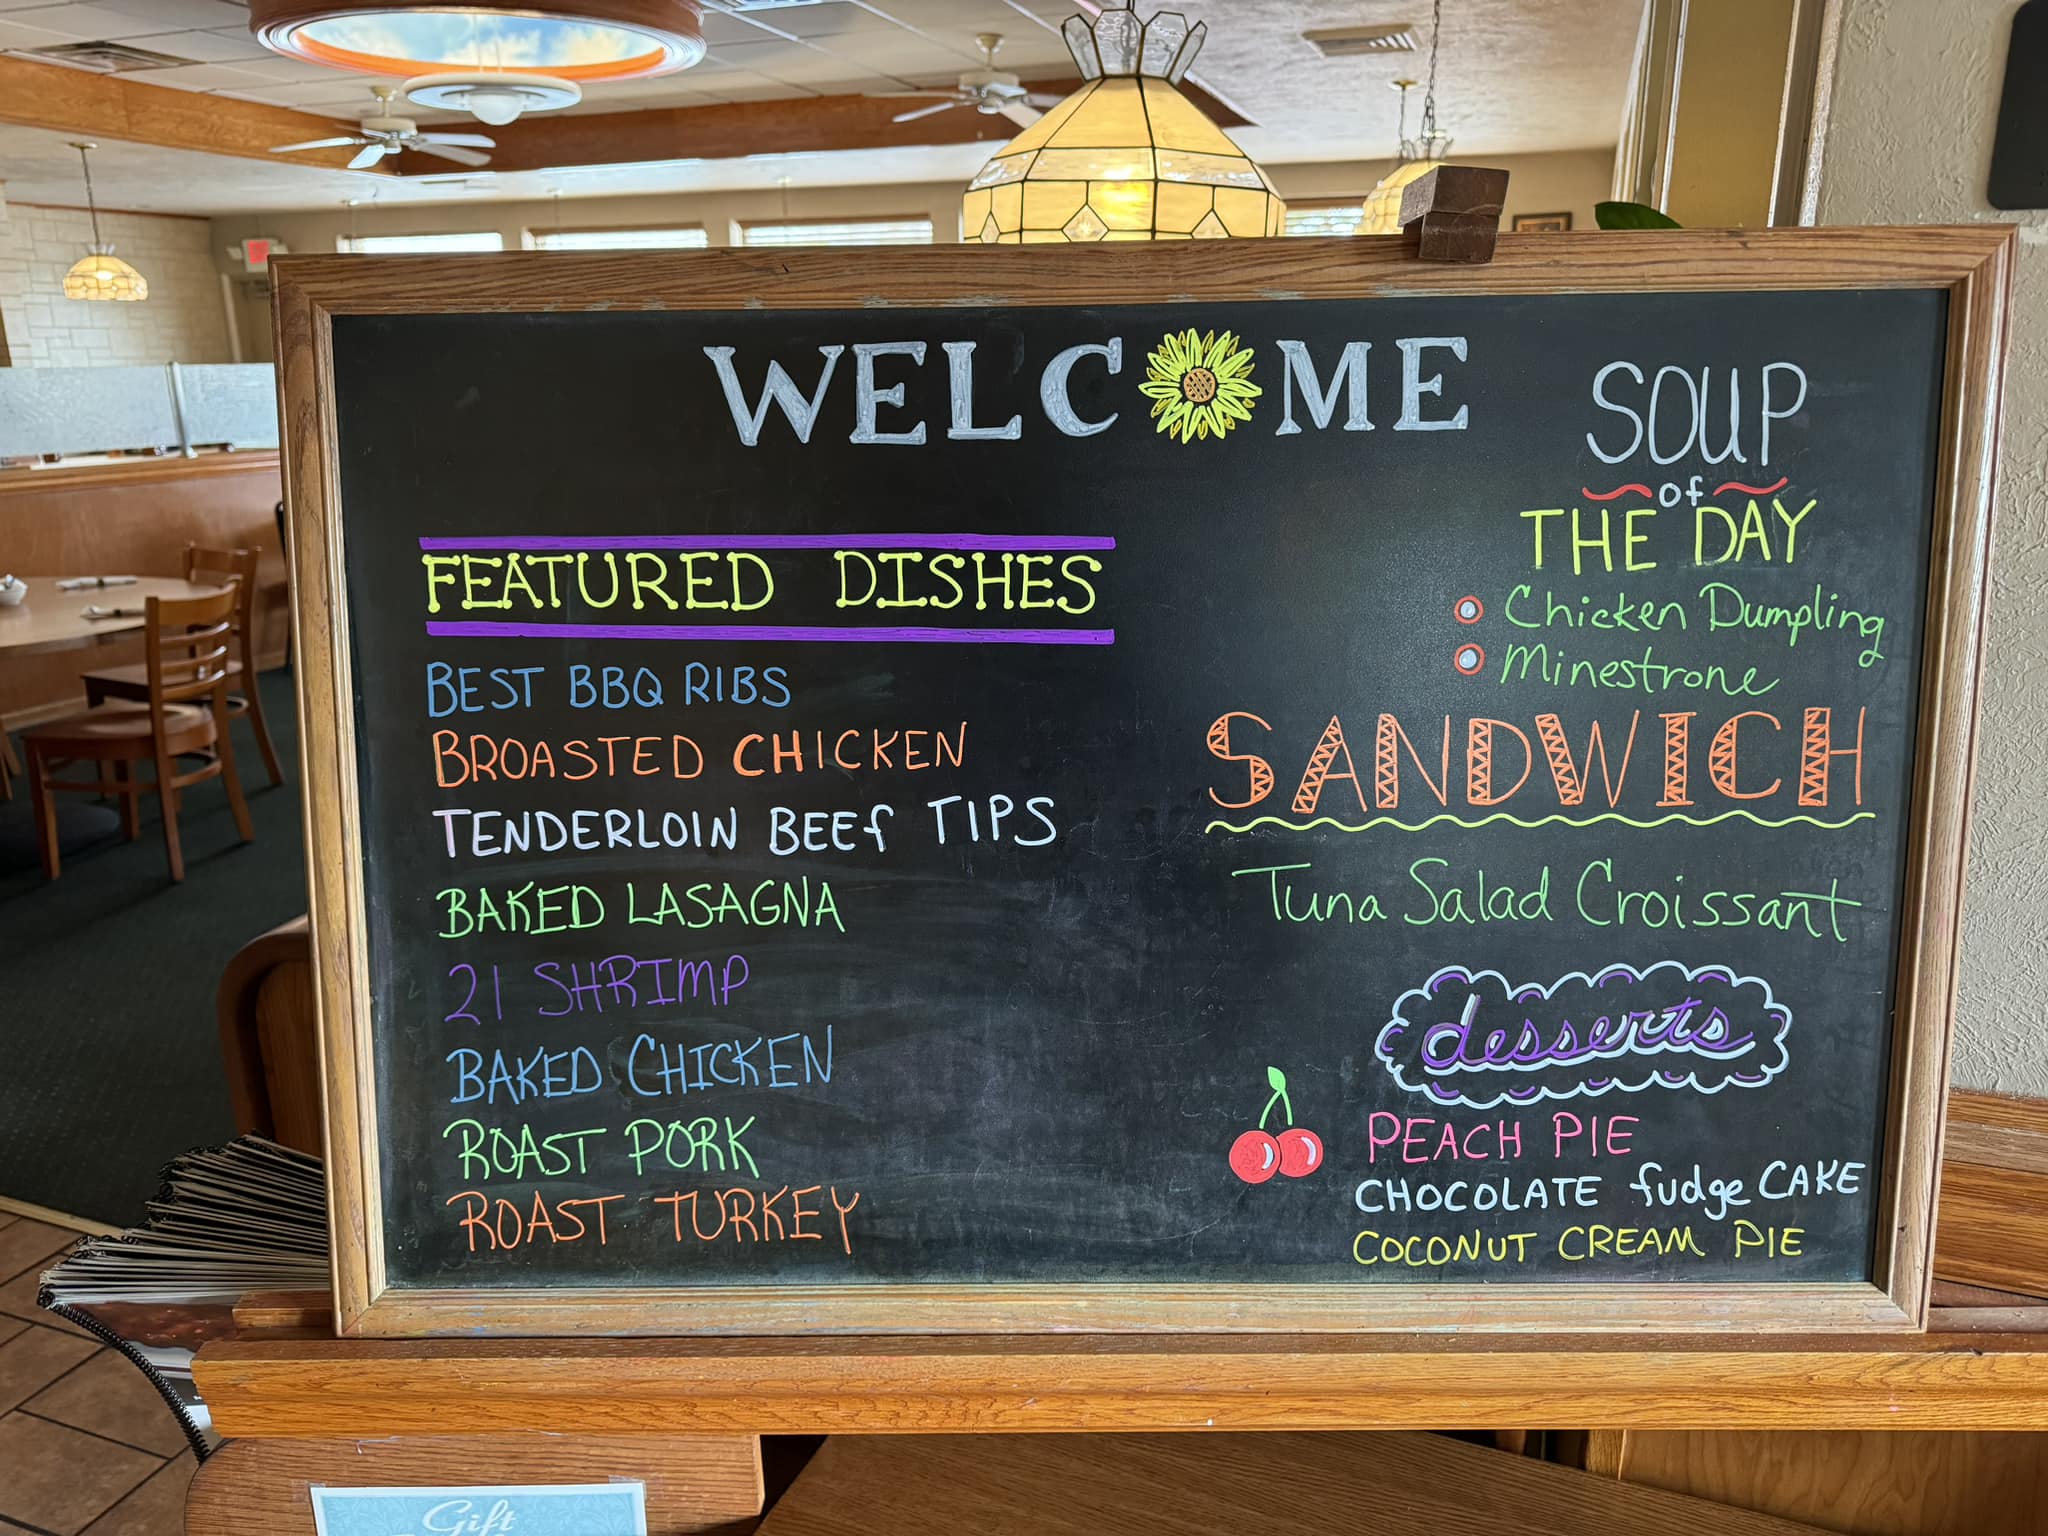 WELCOME
FEATURED DISHES
BEST BBQ RIBS
BROASTED CHICKEN
TENDERLOIN BEEf TIPS
BAKED LASAGNA
21 SHRIMP
BAKED CHICKEN
ROAST PORK
ROAST TURKEY
SOUP
of
THE DAY
Chicken Dumpling
Minestrone
SANDWICH
Tuna Salad Croissant
desserts
PEACH PIE
CHOCOLATE fudge CAKE
COCONUT CREAM PIE
Gift